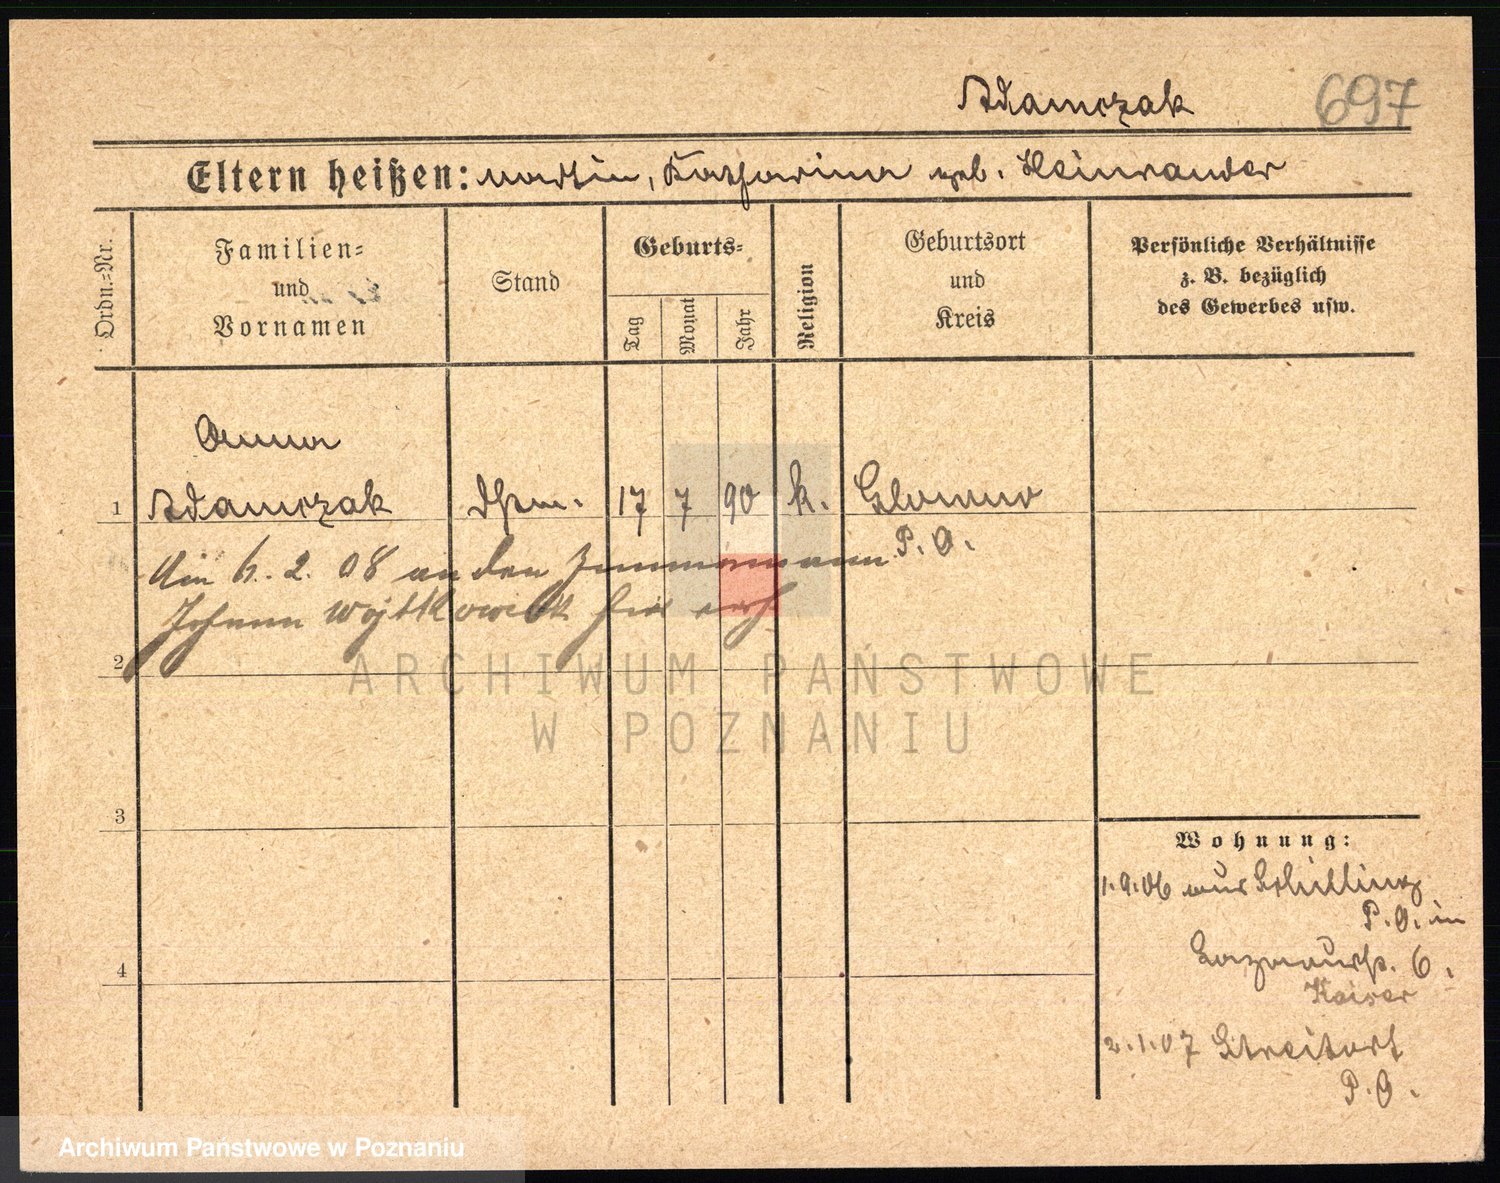 Adamczak 697
Eltern heißen: Martin, Katharina geb.
Ordn.=Nr.
Familien=
und
Vornamen
Stand
Geburts=
Tag
Monat
Jahr
Religion
Geburtsort
und
Kreis
Persönliche Verhältnisse
z. B. bezüglich
des Gewerbes usw.
Anna
1 Adamczak 17 7 90 k.
P. O.
Am 6. 2. 08 an den Zimmermann
Johann
2
ARCHIWUM PAŃSTWOWE
W POZNANIU
3
Wohnung:
1.9.06 aus Schilling
P. O. in
6.
4
Kaiser
2.1.07 Streitort
P. O.
Archiwum Państwowe w Poznaniu